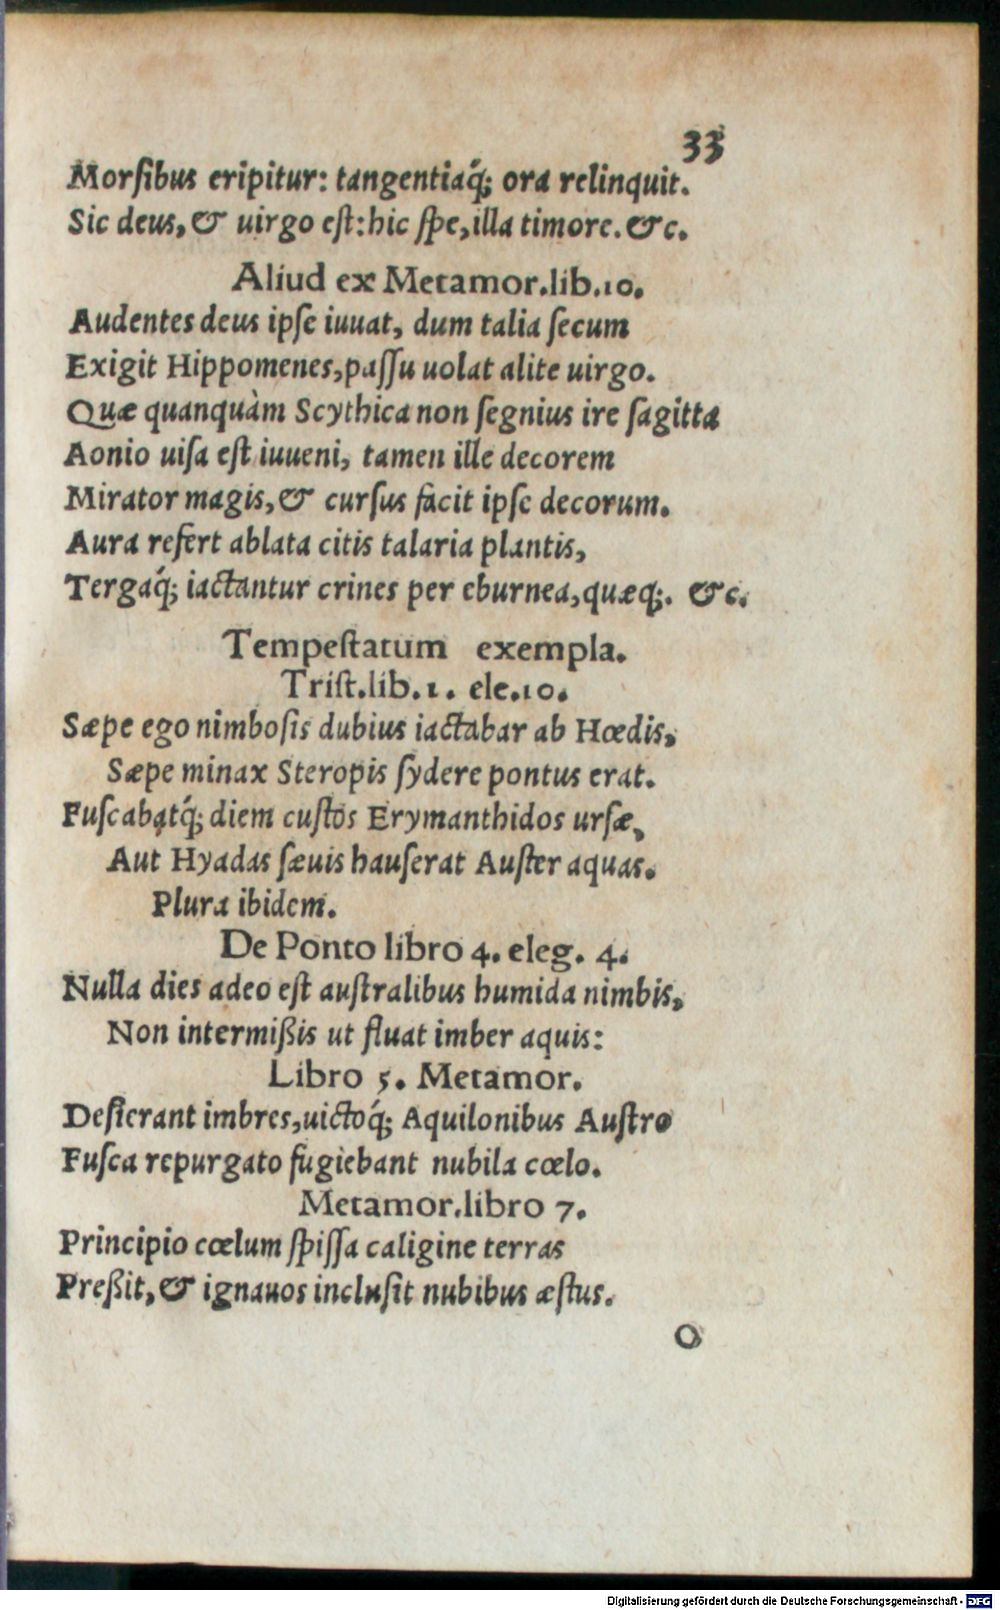 33
Morſibus eripitur: tangentiaq́; ora relinquit.
Sic deus, & uirgo eſt: hic ſpe, illa timore. &c.
Aliud ex Metamor. lib. 10.
Audentes deus ipſe iuuat, dum talia ſecum
Exigit Hippomenes, paſſu uolat alite uirgo.
Quæ quanquàm Scythica non ſegnius ire ſagitta
Aonio uiſa eſt iuueni, tamen ille decorem
Mirator magis, & curſus facit ipſe decorum.
Aura refert ablata citis talaria plantis,
Tergaq́; iactantur crines per eburnea, quæq;. &c.
Tempeſtatum exempla.
Triſt. lib. 1. ele. 10.
Sæpe ego nimboſis dubius iactabar ab Hœdis,
Sæpe minax Steropis ſydere pontus erat.
Fuſcabatq́; diem cuſtos Erymanthidos urſæ,
Aut Hyadas ſæuis hauſerat Auſter aquas.
Plura ibidem.
De Ponto libro 4. eleg. 4.
Nulla dies adeo eſt auſtralibus humida nimbis,
Non intermißis ut fluat imber aquis:
Libro 5. Metamor.
Deſierant imbres, uictoq́; Aquilonibus Auſtro
Fuſca repurgato fugiebant nubila cœlo.
Metamor. libro 7.
Principio cœlum ſpiſſa caligine terras
Preßit, & ignauos incluſit nubibus æſtus.
O
Digitalisierung gefördert durch die Deutsche Forschungsgemeinschaft - DFG